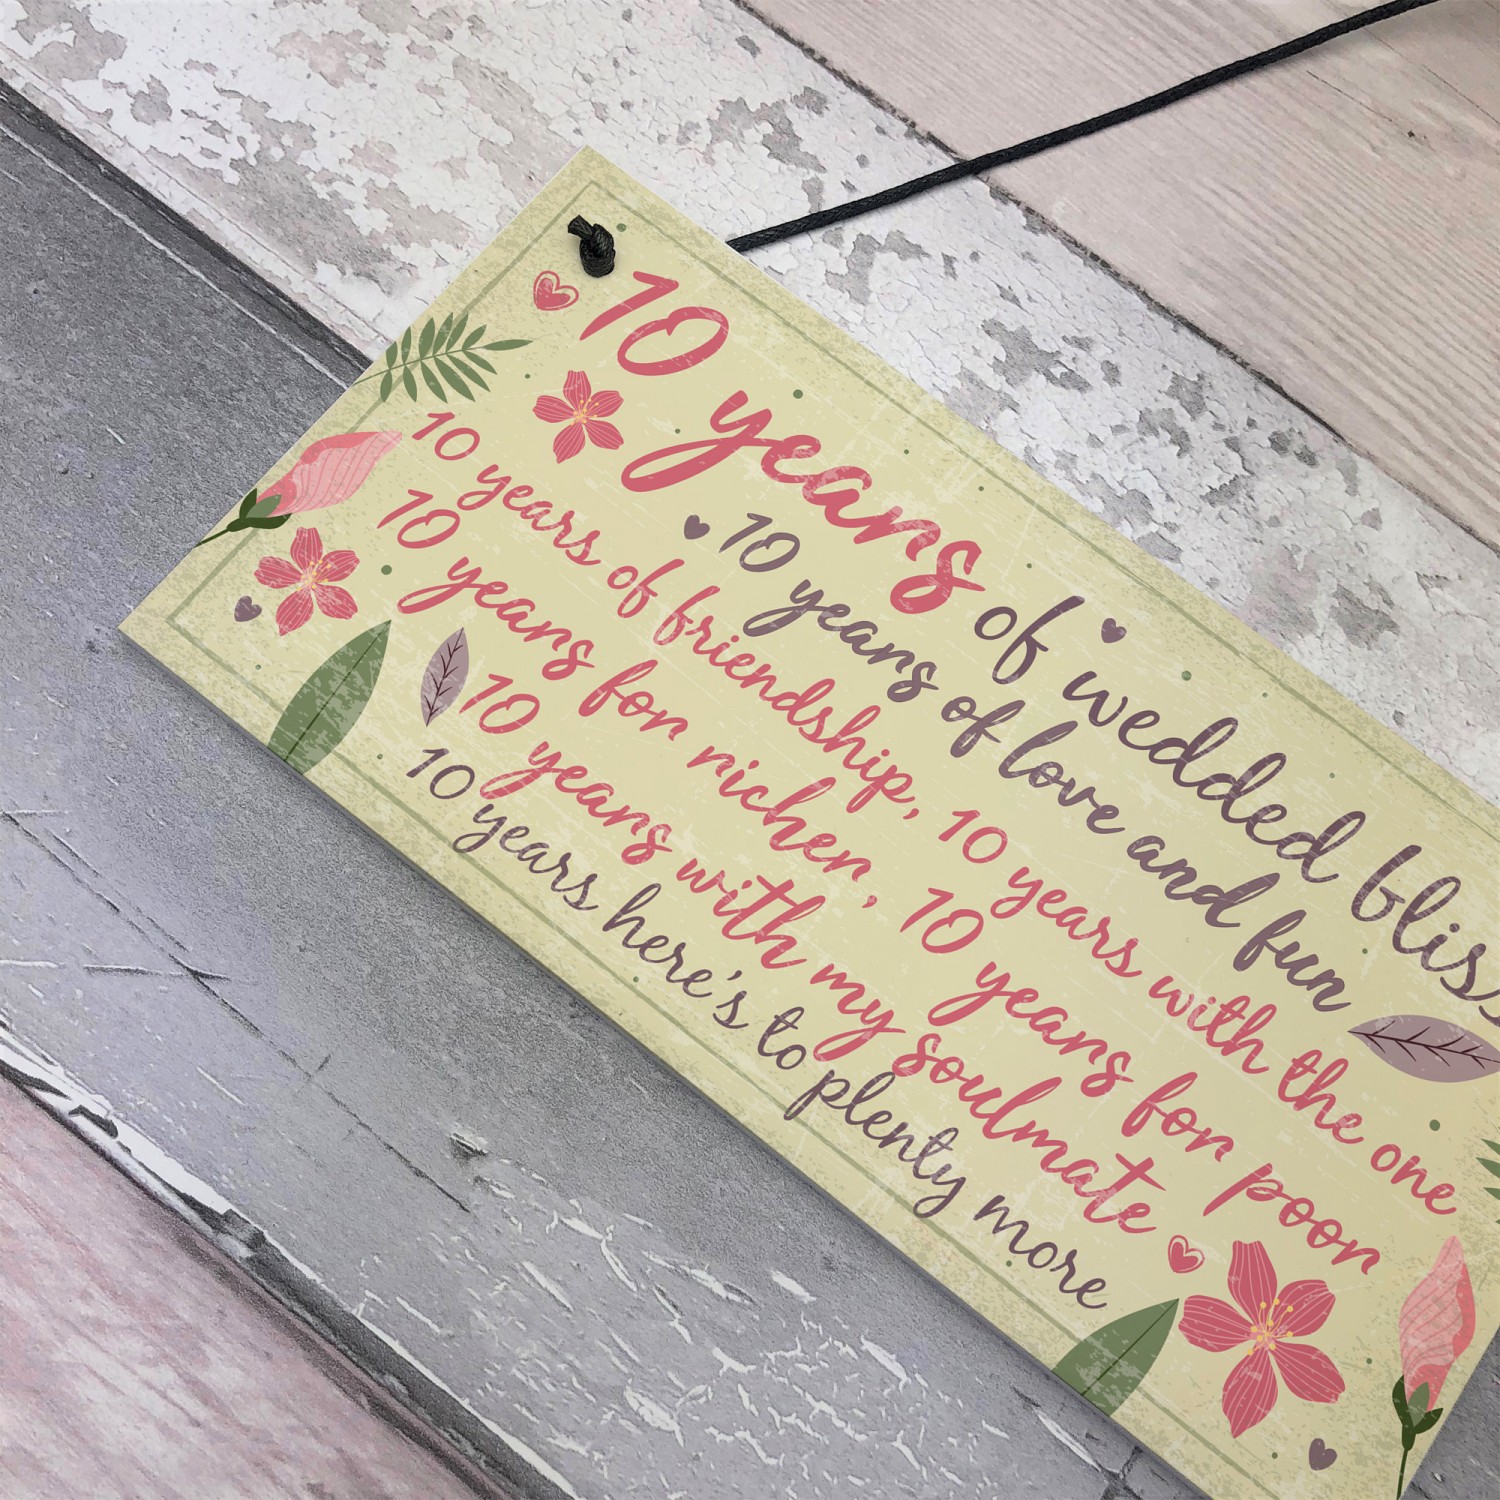 10 years of wedded bliss
10 years of love and fun
10 years of friendship, 10 years with the one
10 years for richer, 10 years for poor
10 years with my soulmate
10 years here's to plenty more